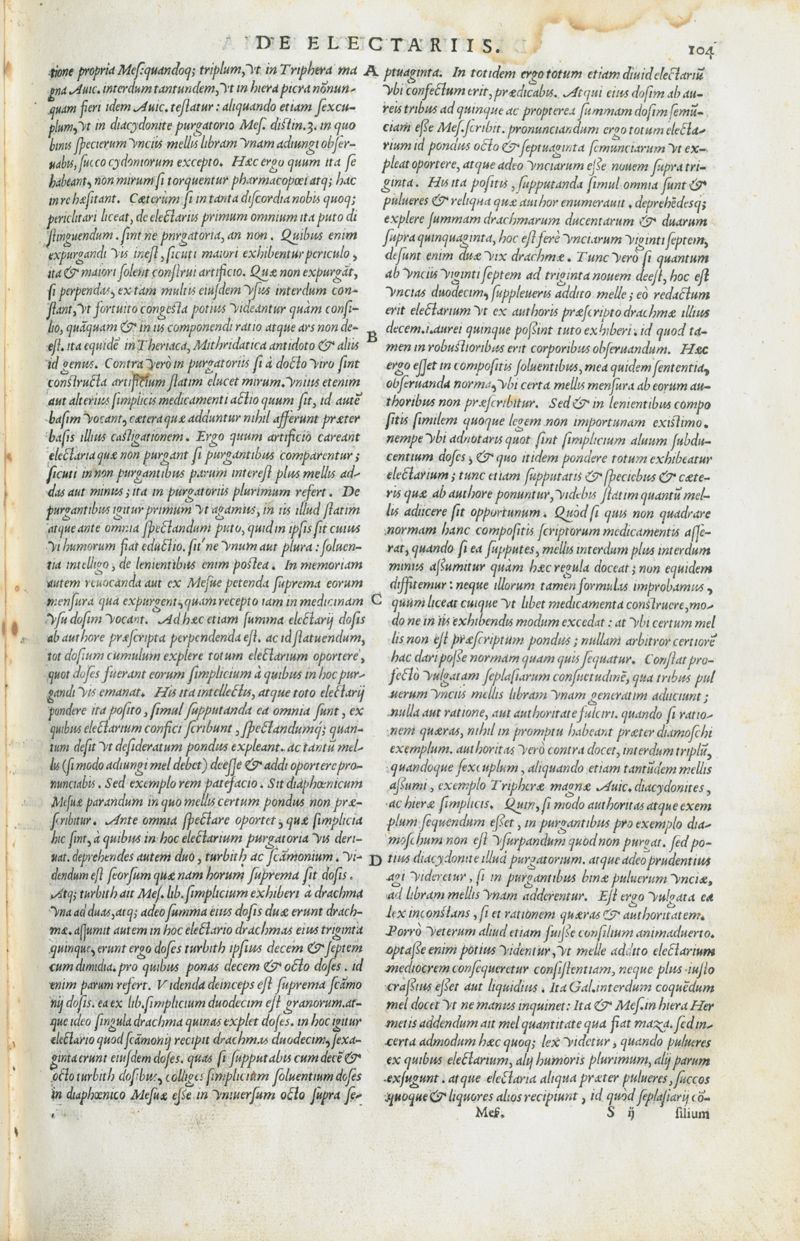 DE ELECTARIIS.
104
tione propria Meſ: quandoq; triplum, vt in Triphera ma
gna Auic. interdum tantundem, vt in hiera picra nōnun-
quam fieri idem Auic. teſtatur: aliquando etiam ſexcu-
plum, vt in diacydonite purgatorio Meſ. diſtin.3. in quo
binis ſpecierum vnciis mellis libram vnam adiungi obſer-
uabis, ſucco cydoniorum excepto. Hæc ergo quum ita ſe
habeant, non mirum ſi torquentur pharmacopœi atq; hac
in re hæſitant. Cæterum ſi in tanta diſcordia nobis quoq;
periclitari liceat, de electariis primum omnium ita puto di
ſtinguendum. ſint ne purgatoria, an non. Quibus enim
expurgandi vis ineſt, ſicuti maiori exhibentur periculo,
ita & maiori ſolent conſtrui artificio. Quæ non expurgāt,
ſi perpendas, ex tam multis eiuſdem vſus interdum con-
ſtant, vt fortuito congeſta potius videantur quàm conſi-
lio, quāquam & in iis componendi ratio atque ars non de-
eſt. ita equidē in Theriaca, Mithridatica antidoto & aliis
id genus. Contra verò in purgatoriis ſi à docto viro ſint
conſtructa artificium ſtatim elucet mirum. vnius etenim
aut alterius ſimplicis medicamenti actio quum ſit, id autē
baſim vocant, cætera quæ adduntur nihil afferunt præter
baſis illius caſtigationem. Ergo quum artificio careant
electaria quæ non purgant ſi purgantibus comparentur;
ſicuti in non purgantibus parum intereſt plus mellis ad-
das aut minus; ita in purgatoriis plurimum refert. De
purgantibus igitur primum vt agamus, in iis illud ſtatim
atque ante omnia ſpectandum puto, quid in ipſis ſit cuius
vi humorum fiat eductio. ſit ne vnum aut plura: ſoluen-
tia intelligo, de lenientibus enim poſtea. In memoriam
autem reuocanda aut ex Meſue petenda ſuprema eorum
menſura qua expurgent, quam recepto iam in medicinam
vſu doſim vocant. Ad hæc etiam ſumma electarij doſis
ab authore præſcripta perpendenda eſt. ac id ſtatuendum,
tot doſium cumulum explere totum electarium oportere,
quot doſes fuerant eorum ſimplicium à quibus in hoc pur-
gandi vis emanat. His ita intellectis, atque toto electarij
pondere ita poſito, ſimul ſupputanda ea omnia ſunt, ex
quibus electarium confici ſcribunt, ſpectandumq; quan-
tum deſit vt deſideratum pondus expleant. ac tantū mel-
lis (ſi modo adiungi mel debet) deeſſe & addi oportere pro-
nunciabis. Sed exemplo rem patefacio. Sit diaphœnicum
Meſuæ parandum in quo mellis certum pondus non præ-
ſcribitur. Ante omnia ſpectare oportet, quæ ſimplicia
hic ſint, à quibus in hoc electarium purgatoria vis deri-
uat. deprehendes autem duo, turbith ac ſcāmonium. vi-
dendum eſt ſeorſum quæ nam horum ſuprema ſit doſis.
Atq; turbith ait Meſ. lib. ſimplicium exhiberi à drachma
vna ad duas, atq; adeo ſumma eius doſis duæ erunt drach-
mæ. aſſumit autem in hoc electario drachmas eius triginta
quinque, erunt ergo doſes turbith ipſius decem & ſeptem
cum dimidia. pro quibus ponas decem & octo doſes. id
enim parum refert. Videnda deinceps eſt ſuprema ſcāmo
nij doſis. ea ex lib. ſimplicium duodecim eſt granorum. at-
que ideo ſingula drachma quinas explet doſes. in hoc igitur
electario quod ſcāmonij recipit drachmas duodecim, ſexa-
ginta erunt eiuſdem doſes. quas ſi ſupputabis cum decē &
octo turbith doſibus, colliges ſimplicium ſoluentium doſes
in diaphœnico Meſuæ eſſe in vniuerſum octo ſupra ſe-
A
ptuaginta. In totidem ergo totum etiam diuid electariū
vbi confectum erit, prædicabis. Atqui eius doſim ab au-
reis tribus ad quinque ac propterea ſummam doſim ſemū-
ciam eſſe Meſ. ſcribit. pronunciandum ergo totum electa-
rium id pondus octo & ſeptuaginta ſemunciarum vt ex-
pleat oportere, atque adeo vnciarum eſſe nouem ſupra tri-
ginta. His ita poſitis, ſupputanda ſimul omnia ſunt &
pulueres & reliqua quæ author enumerauit. deprehēdesq;
explere ſummam drachmarum ducentarum & duarum
ſupra quinquaginta, hoc eſt ferè vnciarum viginti ſeptem,
deſunt enim duæ vix drachmæ. Tunc verò ſi quantum
ab vnciis viginti ſeptem ad triginta nouem deeſt, hoc eſt
vncias duodecim, ſuppleueris addito melle; eò redactum
erit electarium vt ex authoris præſcripto drachmæ illius
B
decem. i. aurei quinque poſſint tuto exhiberi. id quod ta-
men in robuſtioribus erit corporibus obſeruandum. Hæc
ergo eſſet in compoſitis ſoluentibus, mea quidem ſententia,
obſeruanda norma, vbi certa mellis menſura ab eorum au-
thoribus non præſcribitur. Sed & in lenientibus compo
ſitis ſimilem quoque legem non importunam exiſtimo.
nempe vbi adnotaris quot ſint ſimplicium aluum ſubdu-
centium doſes, & quo itidem pondere totum exhibeatur
electarium; tunc etiam ſupputatis & ſpeciebus & cæte-
ris quæ ab authore ponuntur, videbis ſtatim quantū mel-
lis adiicere ſit opportunum. Quòd ſi quis non quadrare
normam hanc compoſitis ſcriptorum medicamentis aſſe-
rat, quando ſi ea ſupputes, mellis interdum plus interdum
minus aſſumitur quàm hæc regula doceat; non equidem
diffitemur: neque illorum tamen formulas improbamus,
C
quum liceat cuique vt libet medicamenta conſtruere, mo-
do ne in iis exhibendis modum excedat: at vbi certum mel
lis non eſt præſcriptum pondus; nullam arbitror certiorē
hac dari poſſe normam quam quis ſequatur. Conſtat pro-
fectò vulgatam ſeplaſiarum conſuetudinē, qua tribus pul
uerum vnciis mellis libram vnam generatim adiiciunt;
nulla aut ratione, aut authoritate fulciri. quando ſi ratio-
nem quæras, nihil in promptu habeant præter diamoſchi
exemplum. authoritas verò contra docet, interdum triplū,
quandoque ſexcuplum, aliquando etiam tantūdem mellis
aſſumi, exemplo Tripheræ magnæ Auic. diacydonites,
ac hieræ ſimplicis. Quin, ſi modo authoritas atque exem
plum ſequendum eſſet, in purgantibus pro exemplo dia-
moſchum non eſt vſurpandum quòd non purgat. ſed po-
D
tius diacydonite illud purgatorium. atque adeo prudentius
agi videretur, ſi in purgantibus binæ puluerum vnciæ,
ad libram mellis vnam adderentur. Eſt ergo vulgata ea
lex inconſtans, ſi et rationem quæras & authoritatem.
Porrò veterum aliud etiam fuiſſe conſilium animaduerto.
optaſſe enim potius videntur, vt melle addito electarium
mediocrem conſequeretur conſiſtentiam, neque plus iuſto
craſſius eſſet aut liquidius. Ita Gal. interdum coquēdum
mel docet vt ne manus inquinet: Ita & Meſ. in hiera Her
metis addendum ait mel quantitate qua fiat maza. ſed in-
certa admodum hæc quoq; lex videtur, quando pulueres
ex quibus electarium, alij humoris plurimum, alij parum
exſugunt. atque electaria aliqua præter pulueres, ſuccos
quoque & liquores alios recipiunt, id quod ſeplaſiarij cō-
Meſ.
S ij
ſilium